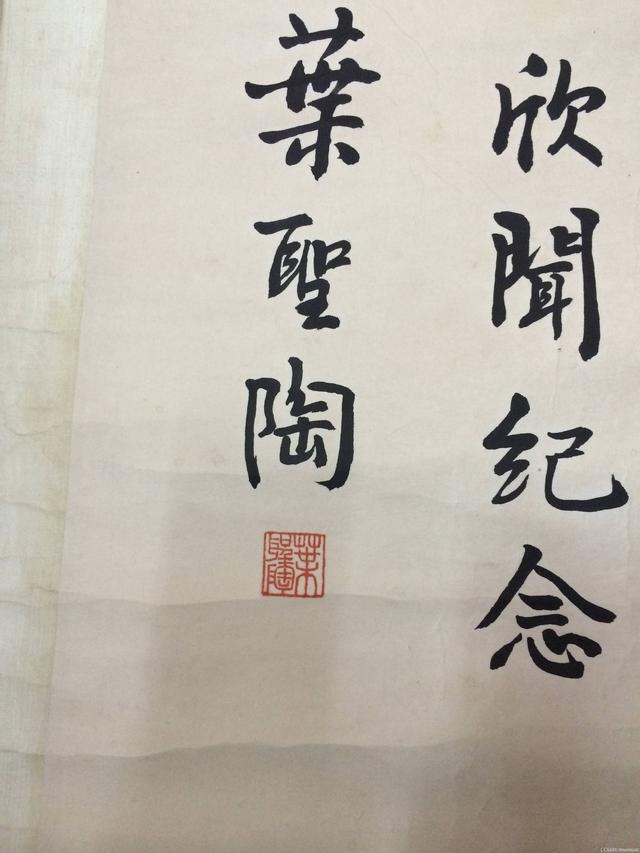 欣聞紀念
葉聖陶
葉聖陶